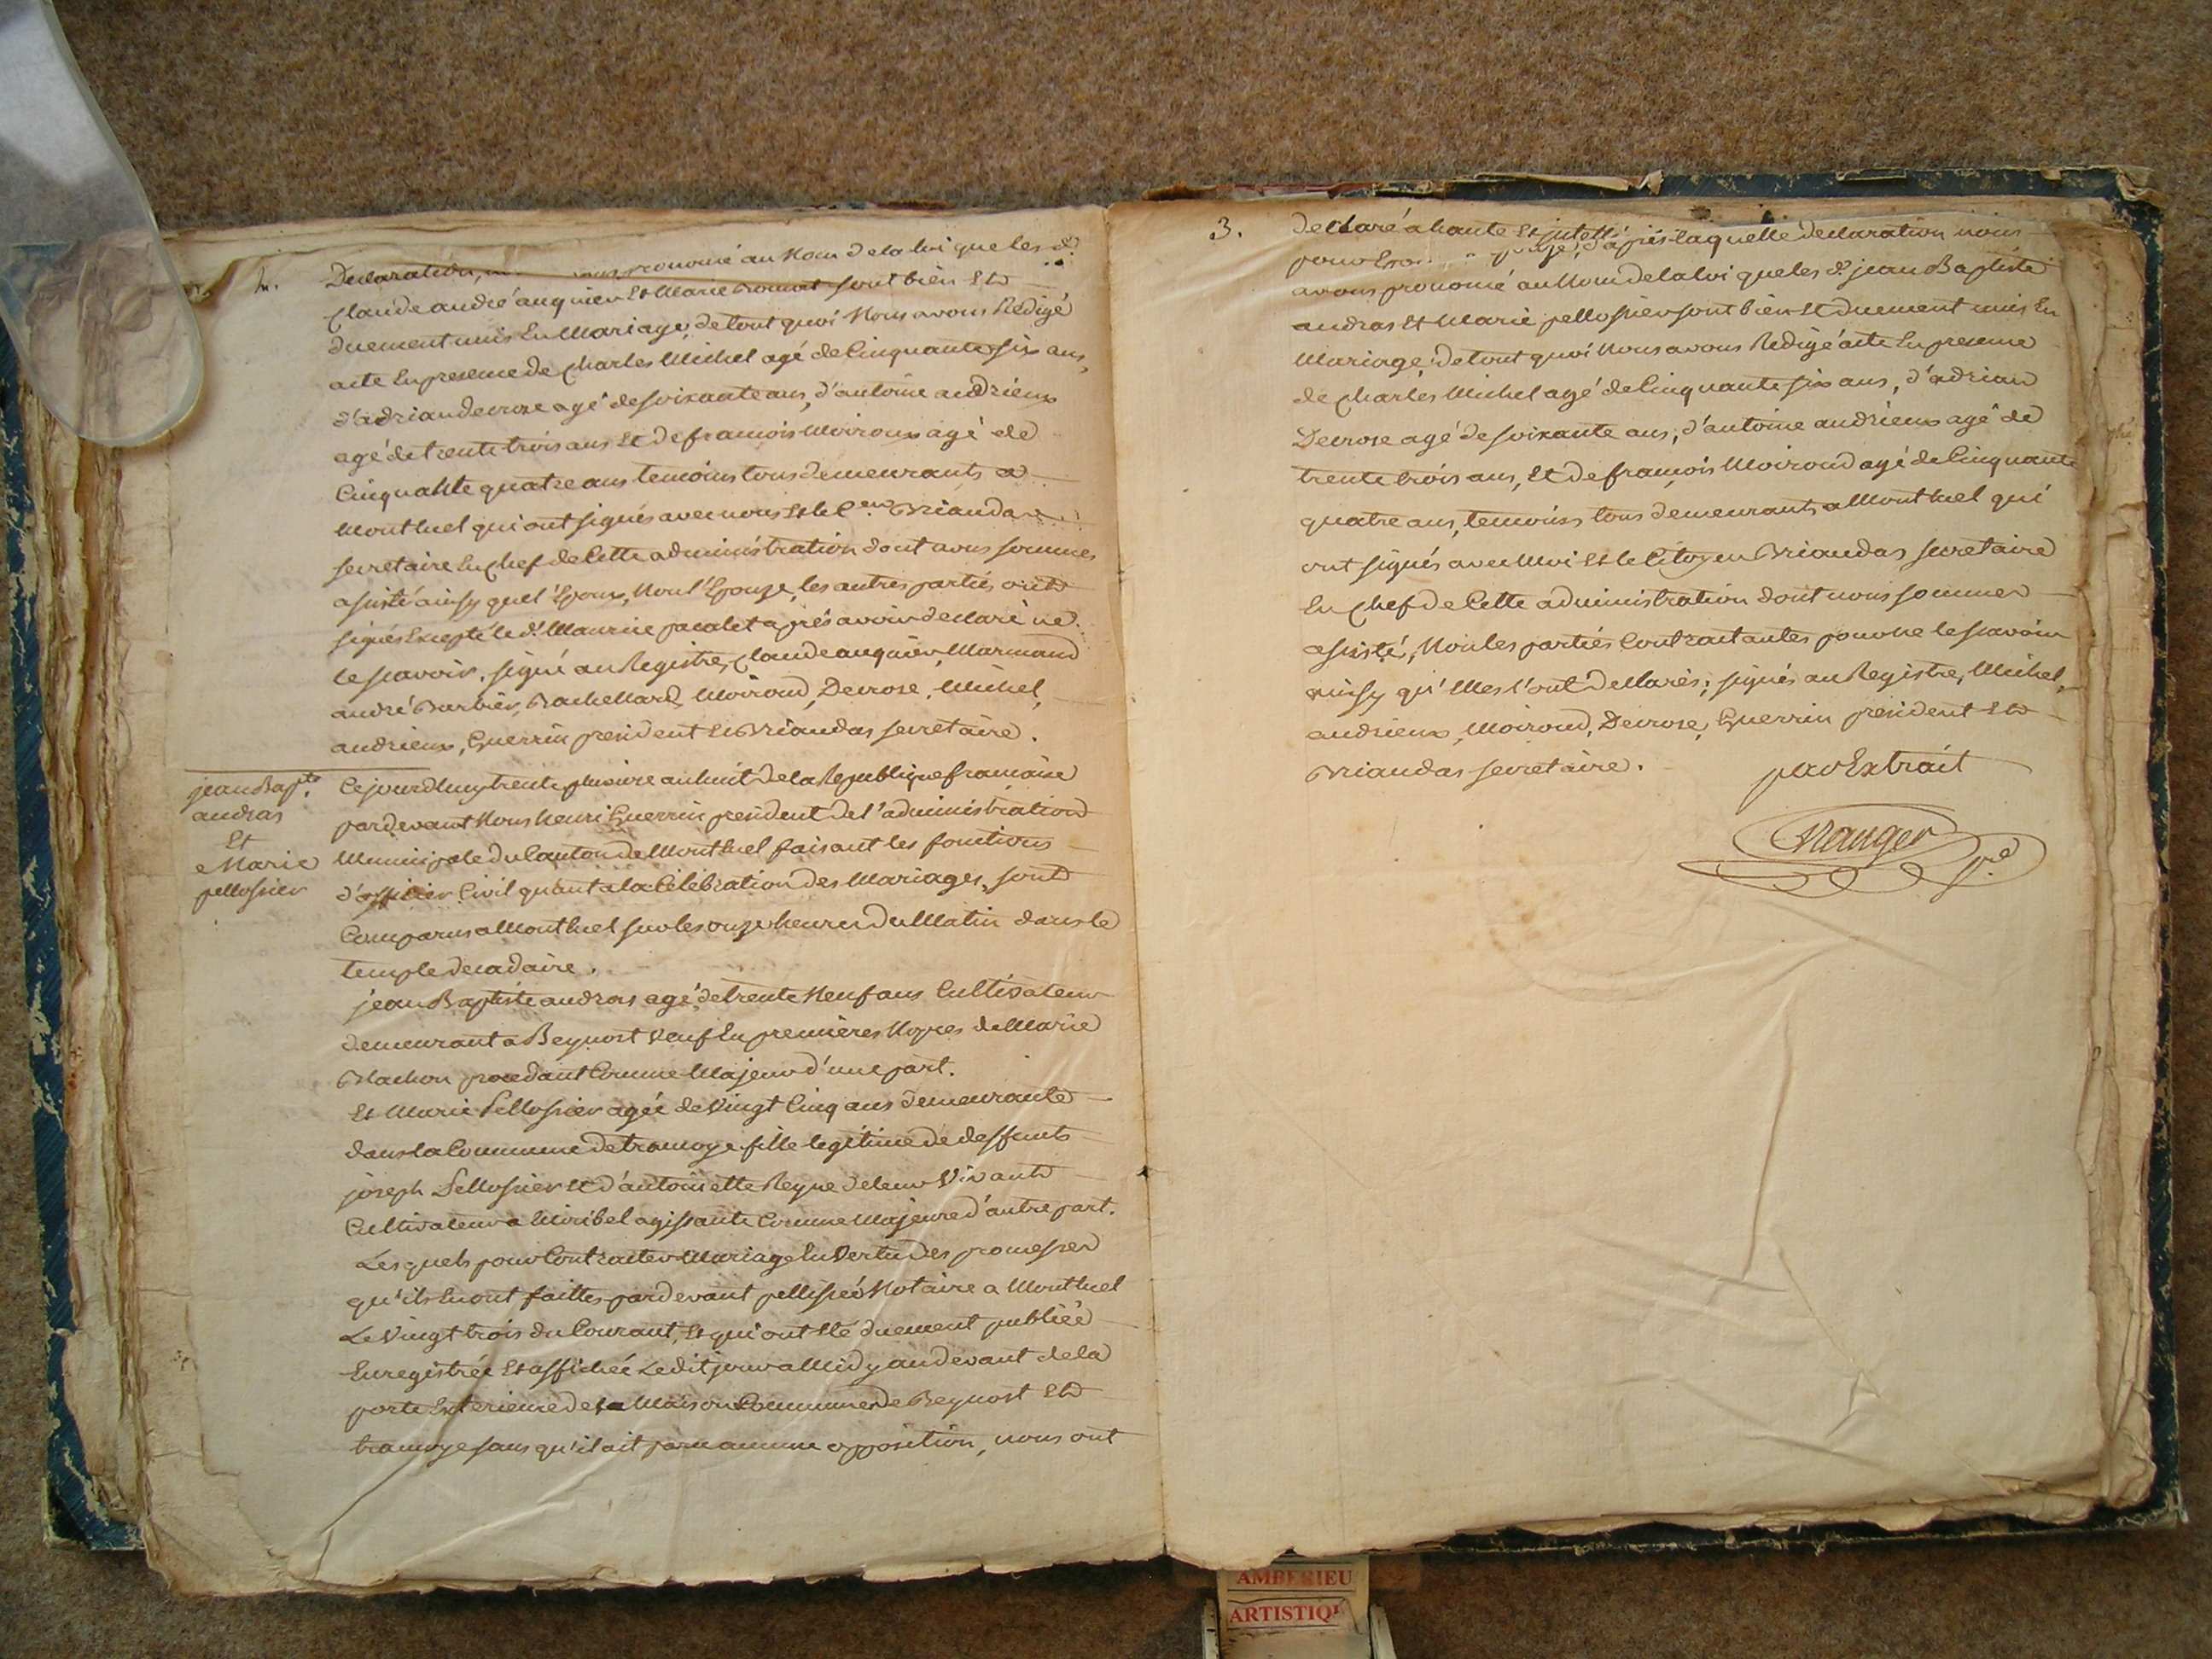 2.
Declaration, avons prononcé au Nom de la loi que les d.
Claude andré auquier Et Marie sont bien Et
duement unis En Mariage, de tout quoi Nous avons Redigé
acte En presence de Charles Michel agé de Cinquante six ans,
d'adrian Decrose agé de soixante ans, d'antoine andrieux
agé de trente trois ans Et de francois Moiroux agé de
Cinquante quatre ans temoins tous demeurants a
Montluel qui ont signés avec nous Et le C.en Briandas
secretaire En Chef de Cette administration dont avons sommes
assisté ainsy que l'Epoux, Non l'Epouse, les autres parties ont
signés Excepté le d. Maurice pacalet après avoir declaré ne
le scavoir. signé au Registre, Claude auquier, Marmand
andré Barbier, Bachellard, Moiroud, Decrose, Michel,
andrieux, Guerrin president Et Briandas secretaire.
jean Bap.te
andras
Et
Marie
pellossier
Cejourdhuy trente pluviose an huit de la Republique francaise
pardevant Nous henri Guerrin president de l'administration
Municipale du Canton de Montluel faisant les fonctions
d'officier Civil quant a la Célébration des Mariages, sont
Comparus a Montluel sur les onze heures du Matin dans le
temple decadaire.
jean Baptiste andras agé de trente Neuf ans Cultivateur
demeurant a Beynost veuf En premières Nopces de Marie
Blachon procedant Comme Majeur d'une part.
Et Marie Pellossier agée de vingt Cinq ans demeurante
dans la Commune de tramoye fille legitime de deffunts
joseph Pellossier Et d'antoinette Reyne de leur vivant
Cultivateur a Miribel agissante Comme Majeure d'autre part.
Lesquels pour Contracter Mariage En vertu des promesses
qu'ils En ont faittes pardevant pellissié Notaire a Montluel
Le vingt trois du Courant, Et qui ont Eté duement publiée
Enregistrée Et affichée Ledit jour a Midy au devant de la
porte Exterieure de la Maison Commune de Beynost Et
tramoye sans qu'il ait paru aucune opposition, nous ont
3.
declaré a haute Et
pour Epoux après laquelle declaration nous
avons prononcé au Nom de la loi que les d. jean Baptiste
andras Et Marie pellossier sont bien Et duement unis En
Mariage; de tout quoi Nous avons Redigé acte En presence
de Charles Michel agé de Cinquante six ans, d'adrian
Decrose agé de soixante ans, d'antoine andrieux agé de
trente trois ans, Et de francois Moiroud agé de Cinquante
quatre ans, temoins tous demeurants a Montluel qui
ont signés avec Moi Et le Citoyen Briandas secretaire
En Chef de Cette administration dont nous sommes
assisté, Non les parties Contractantes pour ne le scavoir
ainsy qu'Elles l'ont declarés; signés au Registre, Michel,
andrieux, Moiroud, Decrose, Guerrin president Et
Briandas secretaire.
par Extrait
AMBERIEU
ARTISTIQ